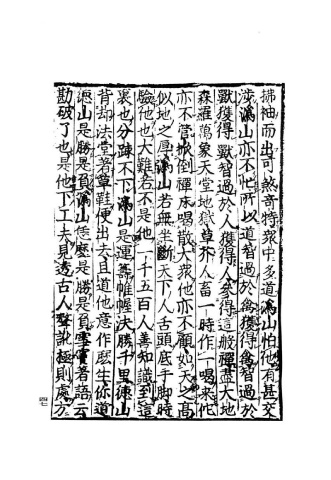 拂袖而出可煞奇特衆中多道溈山怕他有甚交
涉溈山亦不忙所以道智過於禽獲得禽智過於
獸獲得獸智過於人獲得人參得這般禪盡大地
森羅萬象天堂地獄草芥人畜一時作一喝來他
亦不管掀倒禪床喝散大衆他亦不顧如天之高
似地之厚溈山若無坐斷天下人舌頭底手脚時
驗他也大難若不是他一千五百人善知識到這
裏也分踈不下溈山是運籌帷幄決勝千里德山
背却法堂著草鞋便出去且道他意作麽生你道
德山是勝是負溈山恁麽是勝是負雪竇著語云
勘破了也是他下工夫見透古人聱訛極則處方
四七